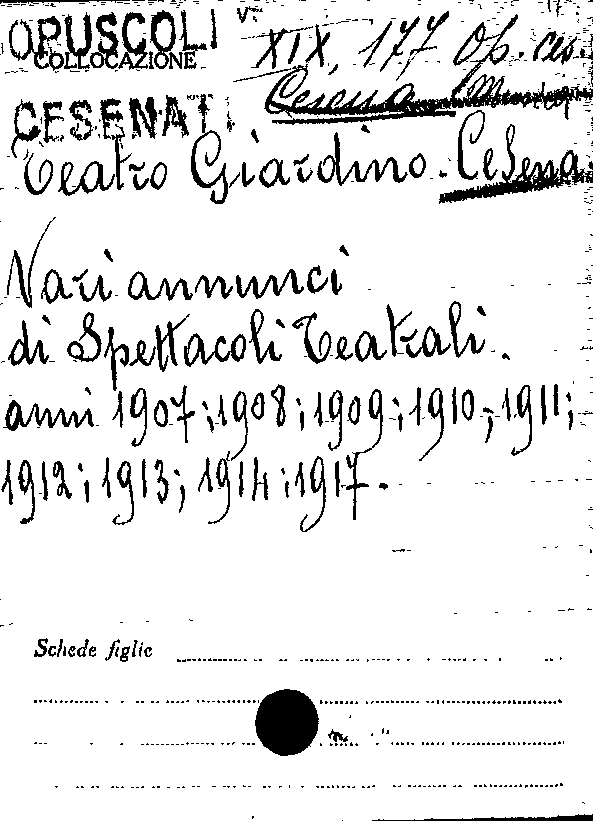 OPUSCOLI
COLLOCAZIONE
XIX, 177 Op. ces.
CESENATI
Cesena
Teatro Giardino. Cesena.
Vari annunci
di Spettacoli Teatrali.
anni 1907; 1908; 1909; 1910; 1911;
1912; 1913; 1914; 1917.
Schede figlie